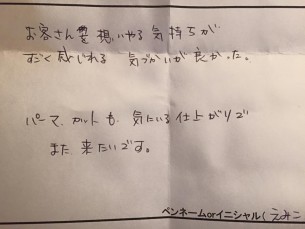 お客さんを想いやる気持ちが
すごく感じれる 気づかいが良かった。
パーマ、カットも、気にいる仕上がりで
また、来たいです。
ペンネームorイニシャル(えみこ